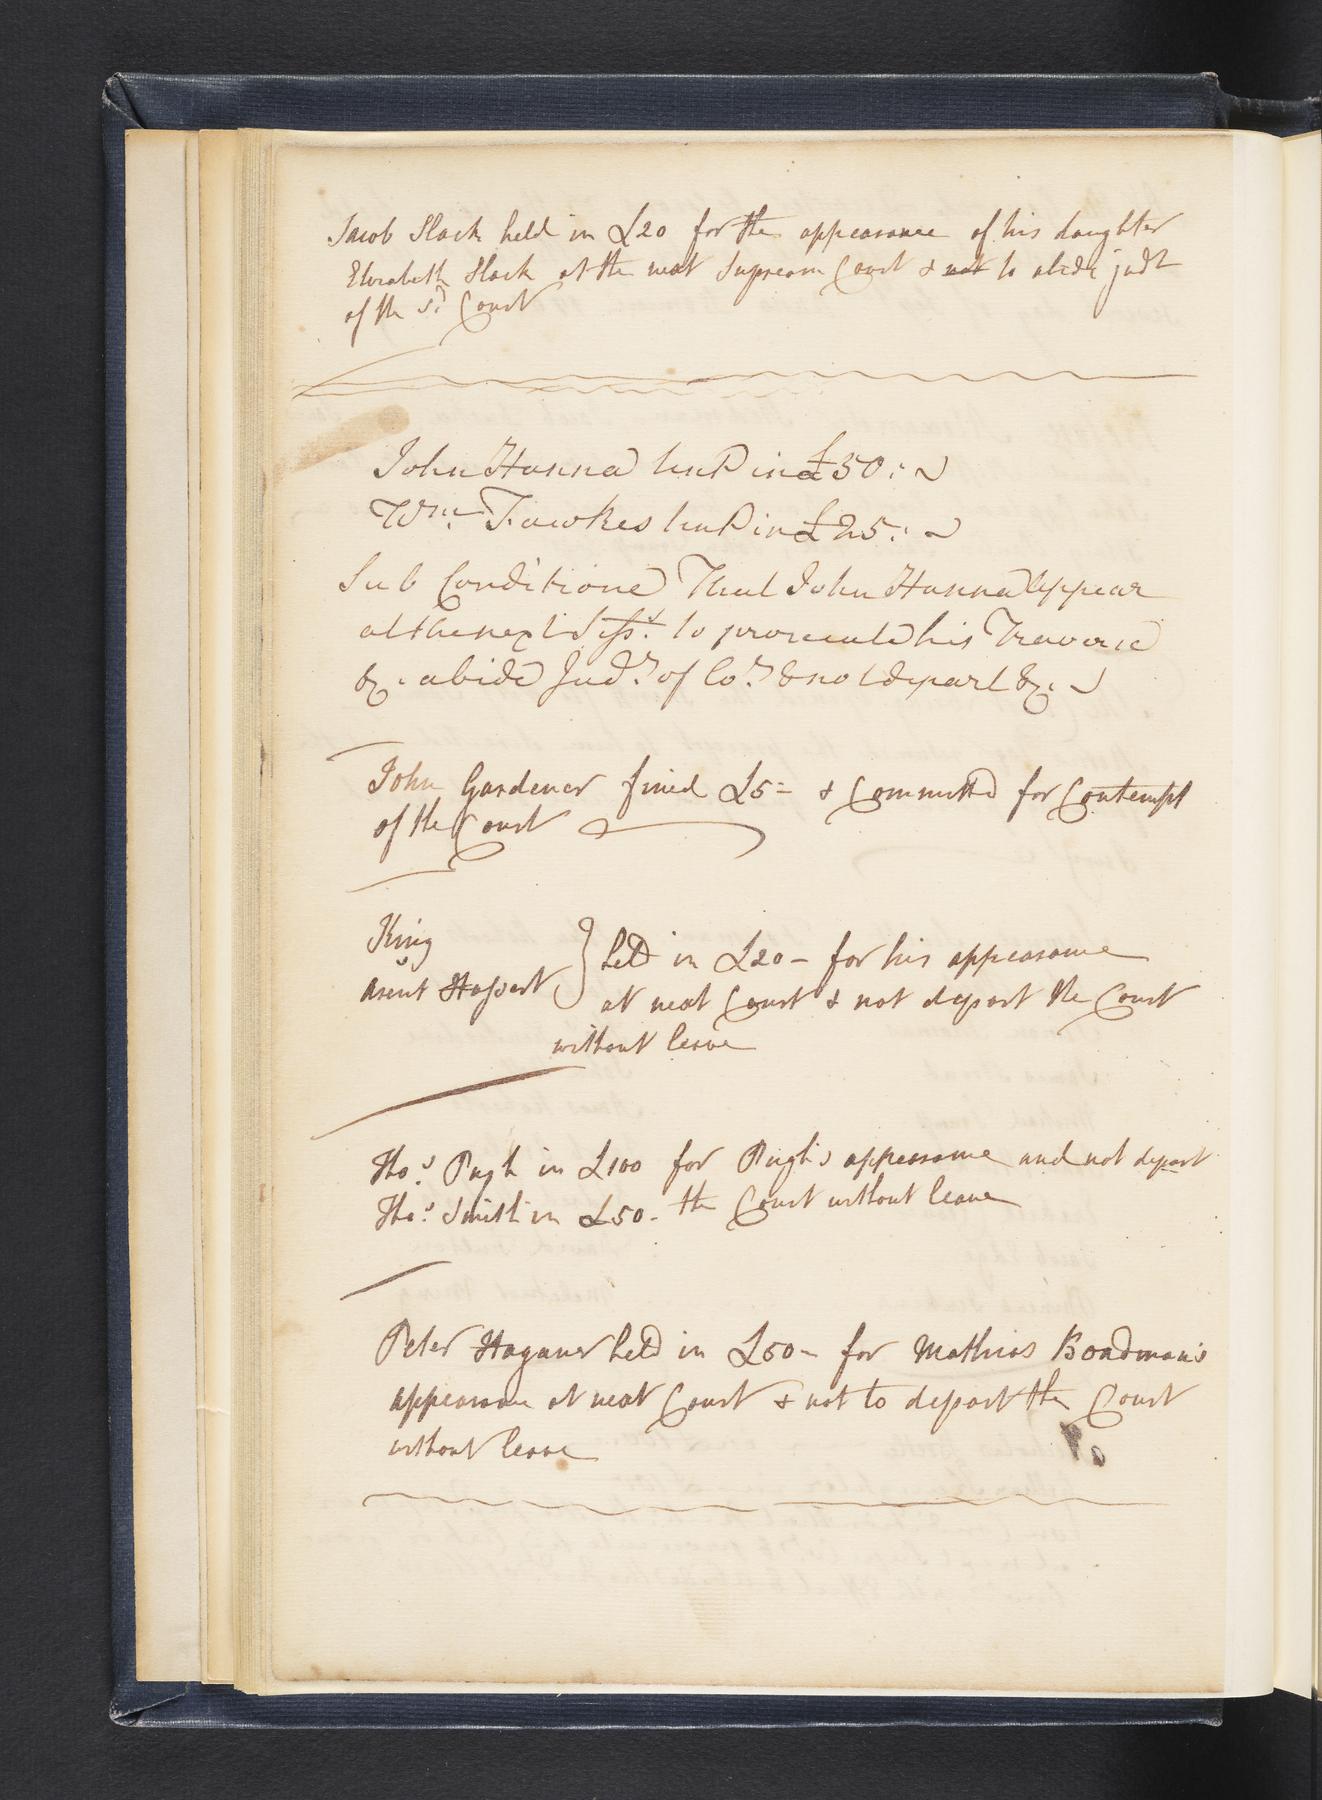 Jacob Slack held in £20 for the appearance of his daughter
Elizabeth Slack at the next Supream Court & not to abide judt
of the sd. Court
John Hanna hend in £50:
Wm. Fawkes hend in £25:
Sub Conditione That John Hanna Appear
at the next Sess.s to prosecute his Traverse
&. abide Judt. of Cot. & not depart &c.
John Gardener fined £5= & Committd for Contempt
of the Court
King
v
Arent Hassert } held in £20 - for his appearance
at next Court & not depart the Court
without leave
Tho.s Pugh in £100 for Pugh's appearance and not depart
Tho.s Smith in £50 - the Court without leave
Peter Haganer held in £50 - for Mathias Boadman's
appearance at next Court & not to depart the Court
without leave